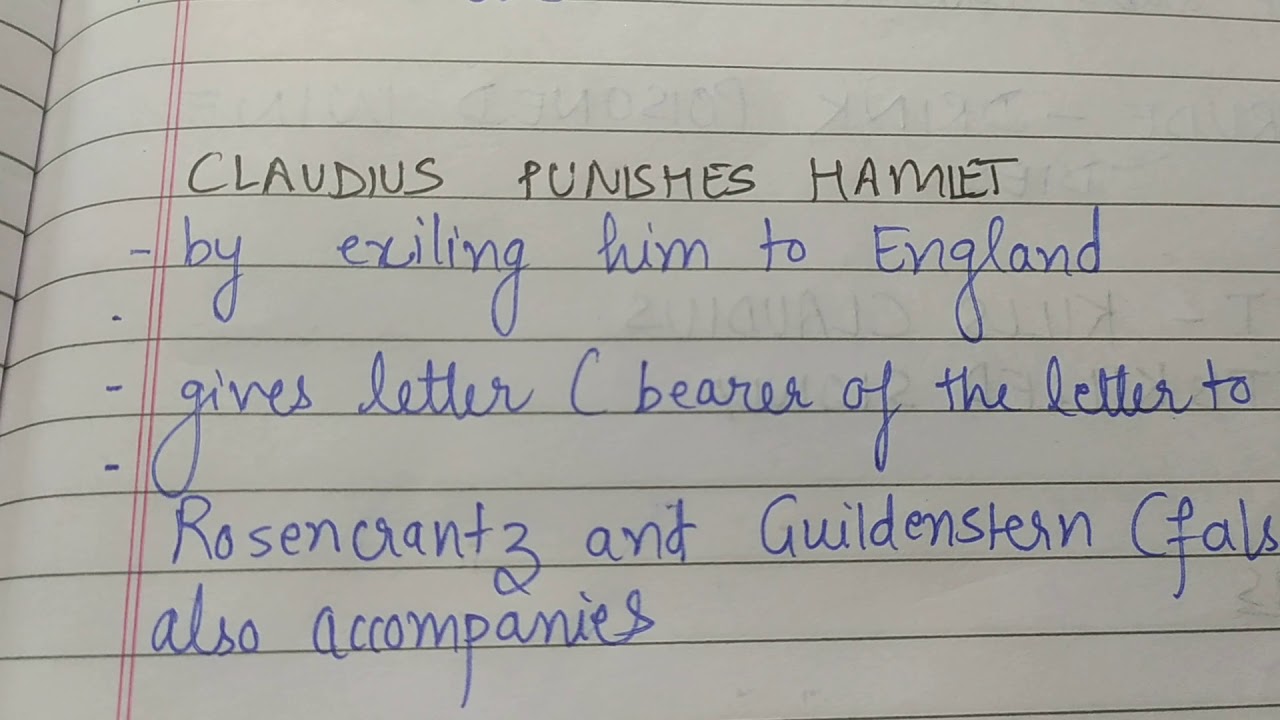 CLAUDIUS PUNISHES HAMLET
- by exiling him to England
- gives letter ( bearer of the letter to
Rosencrantz and Guildenstern (fals
also accompanies